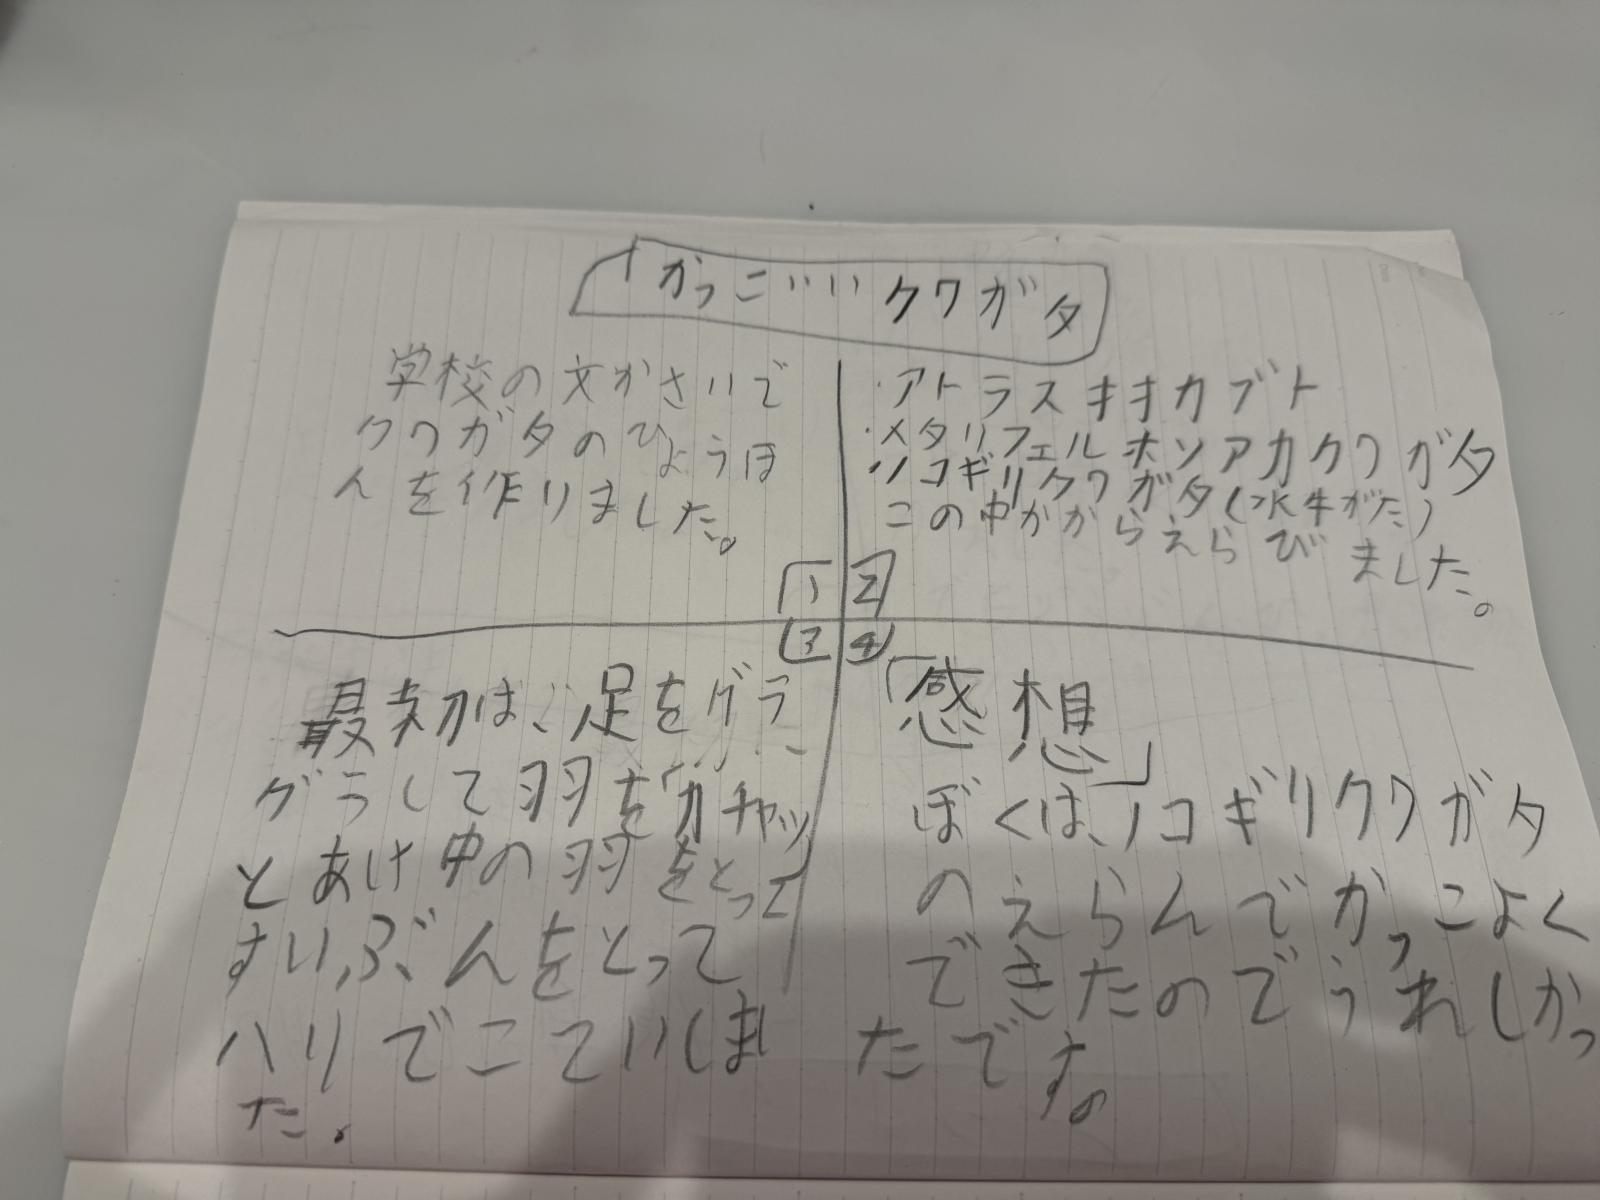 「かっこいいクワガタ
学校の文かさいで
クワガタのひょうほ
んを作りました。
1
・アトラスオオカブト
・メタリフェルホソアカクワガタ
・ノコギリクワガタ(水牛がた)
この中かからえらびました。
2
3
最初は、足をグラ
グラして羽をガチャッ
とあけ中の羽をとって
すいぶんをとって
ハリでこていしまし
た。
4
「感想」
ぼくは、ノコギリクワガタ
のえらんでかっこよく
できたのでうれしかっ
たです。